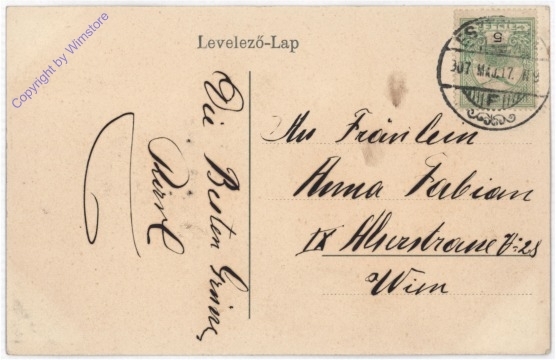 Copyright by Wimstore
Levelező-Lap
5
907 MÁJ. 17.
F
Die Besten Grüsse
An Fräulein
Anna Fabian
IX Alserstrasse
Wien